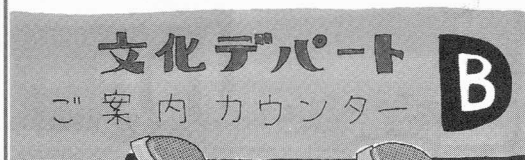 文化デパート
B
ご案内カウンター